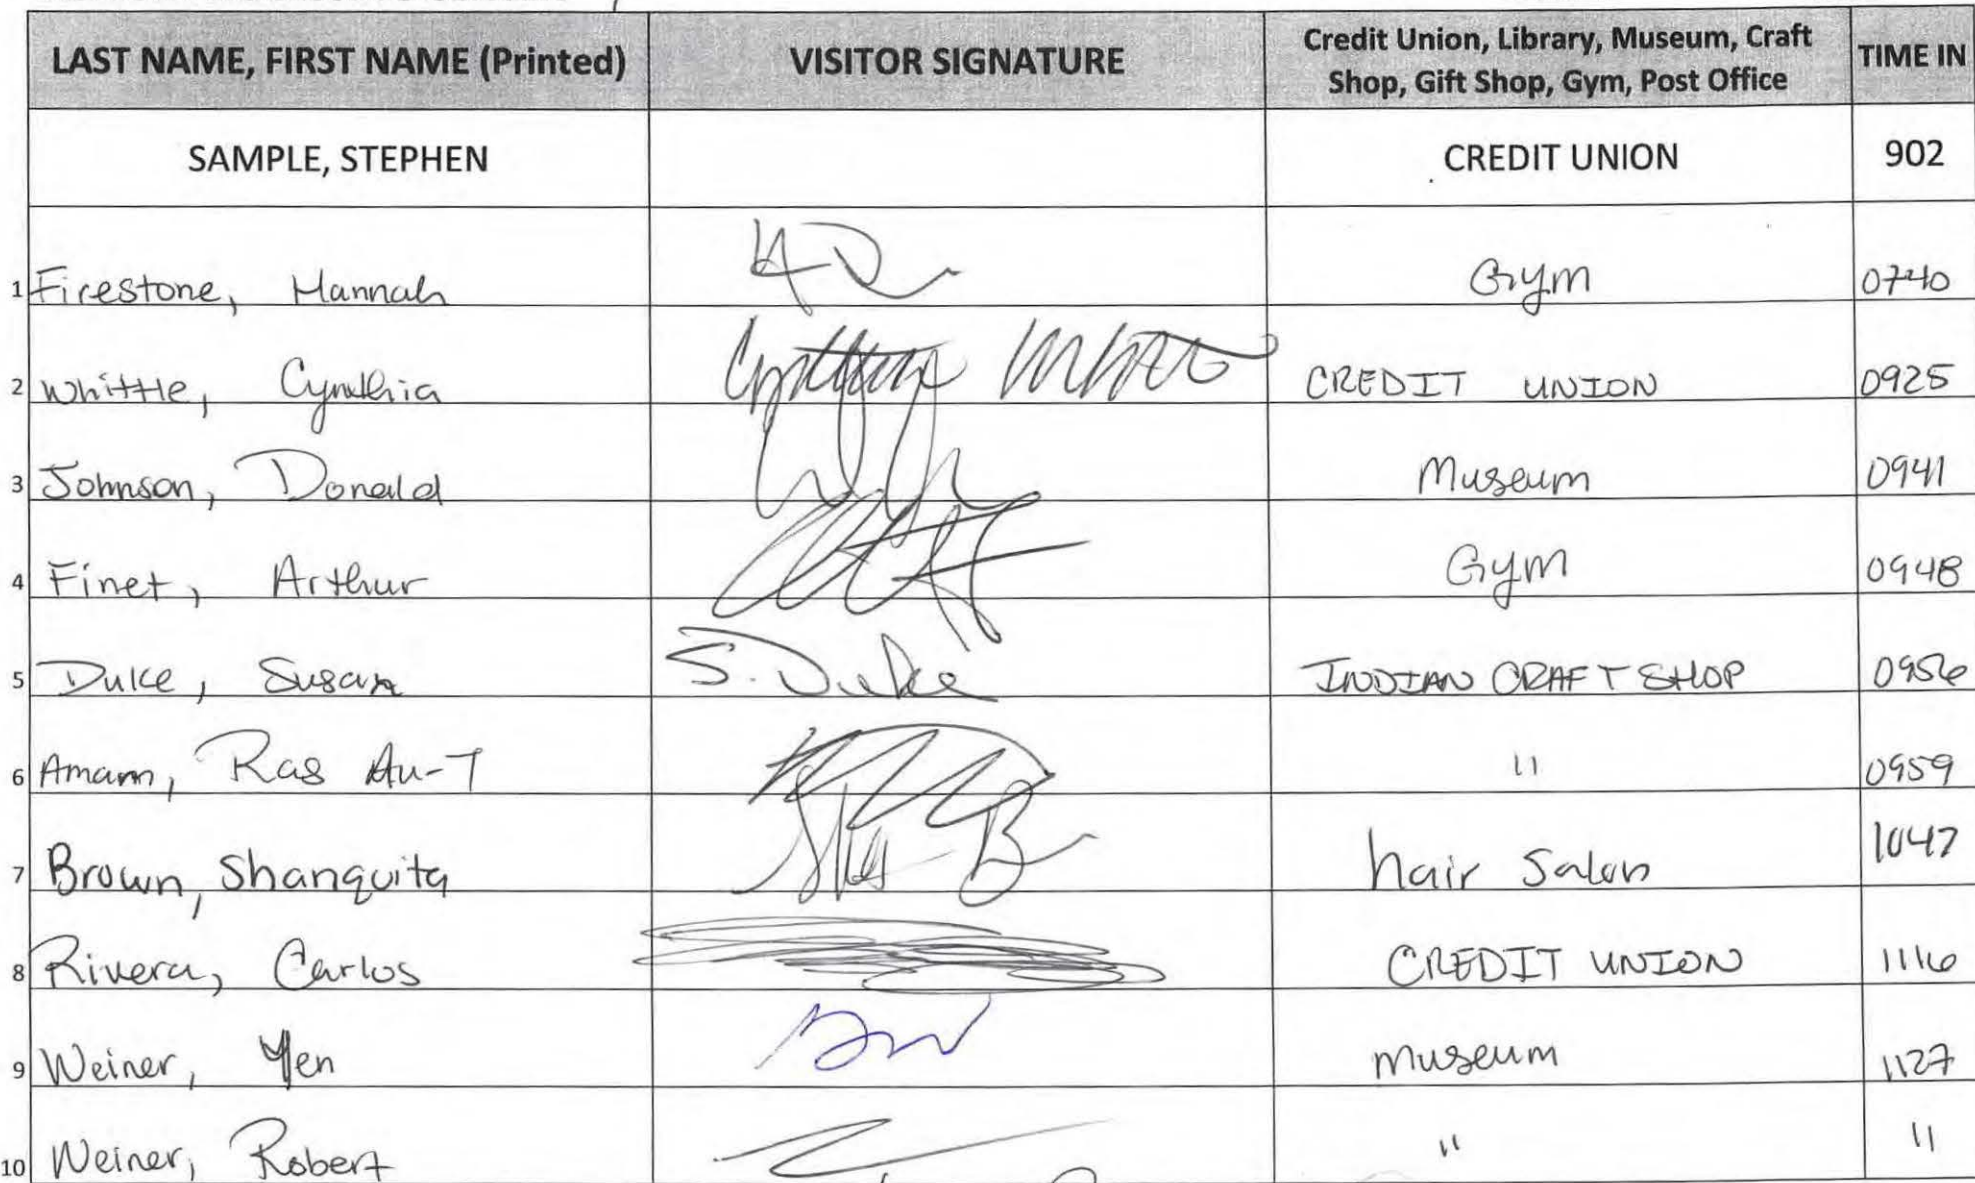 LAST NAME, FIRST NAME (Printed) VISITOR SIGNATURE Credit Union, Library, Museum, Craft Shop, Gift Shop, Gym, Post Office TIME IN
SAMPLE, STEPHEN CREDIT UNION 902
1 Firestone, Hannah Gym 0740
2 Whittle, Cynthia CREDIT UNION 0925
3 Johnson, Donald Museum 0941
4 Finet, Arthur Gym 0948
5 Duke, Susan S. Duke INDIAN CRAFT SHOP 0956
6 Amann, Ras Au-T " 0959
7 Brown, Shanquita hair Salon 1047
8 Rivera, Carlos CREDIT UNION 1116
9 Weiner, Yen museum 1127
10 Weiner, Robert " "